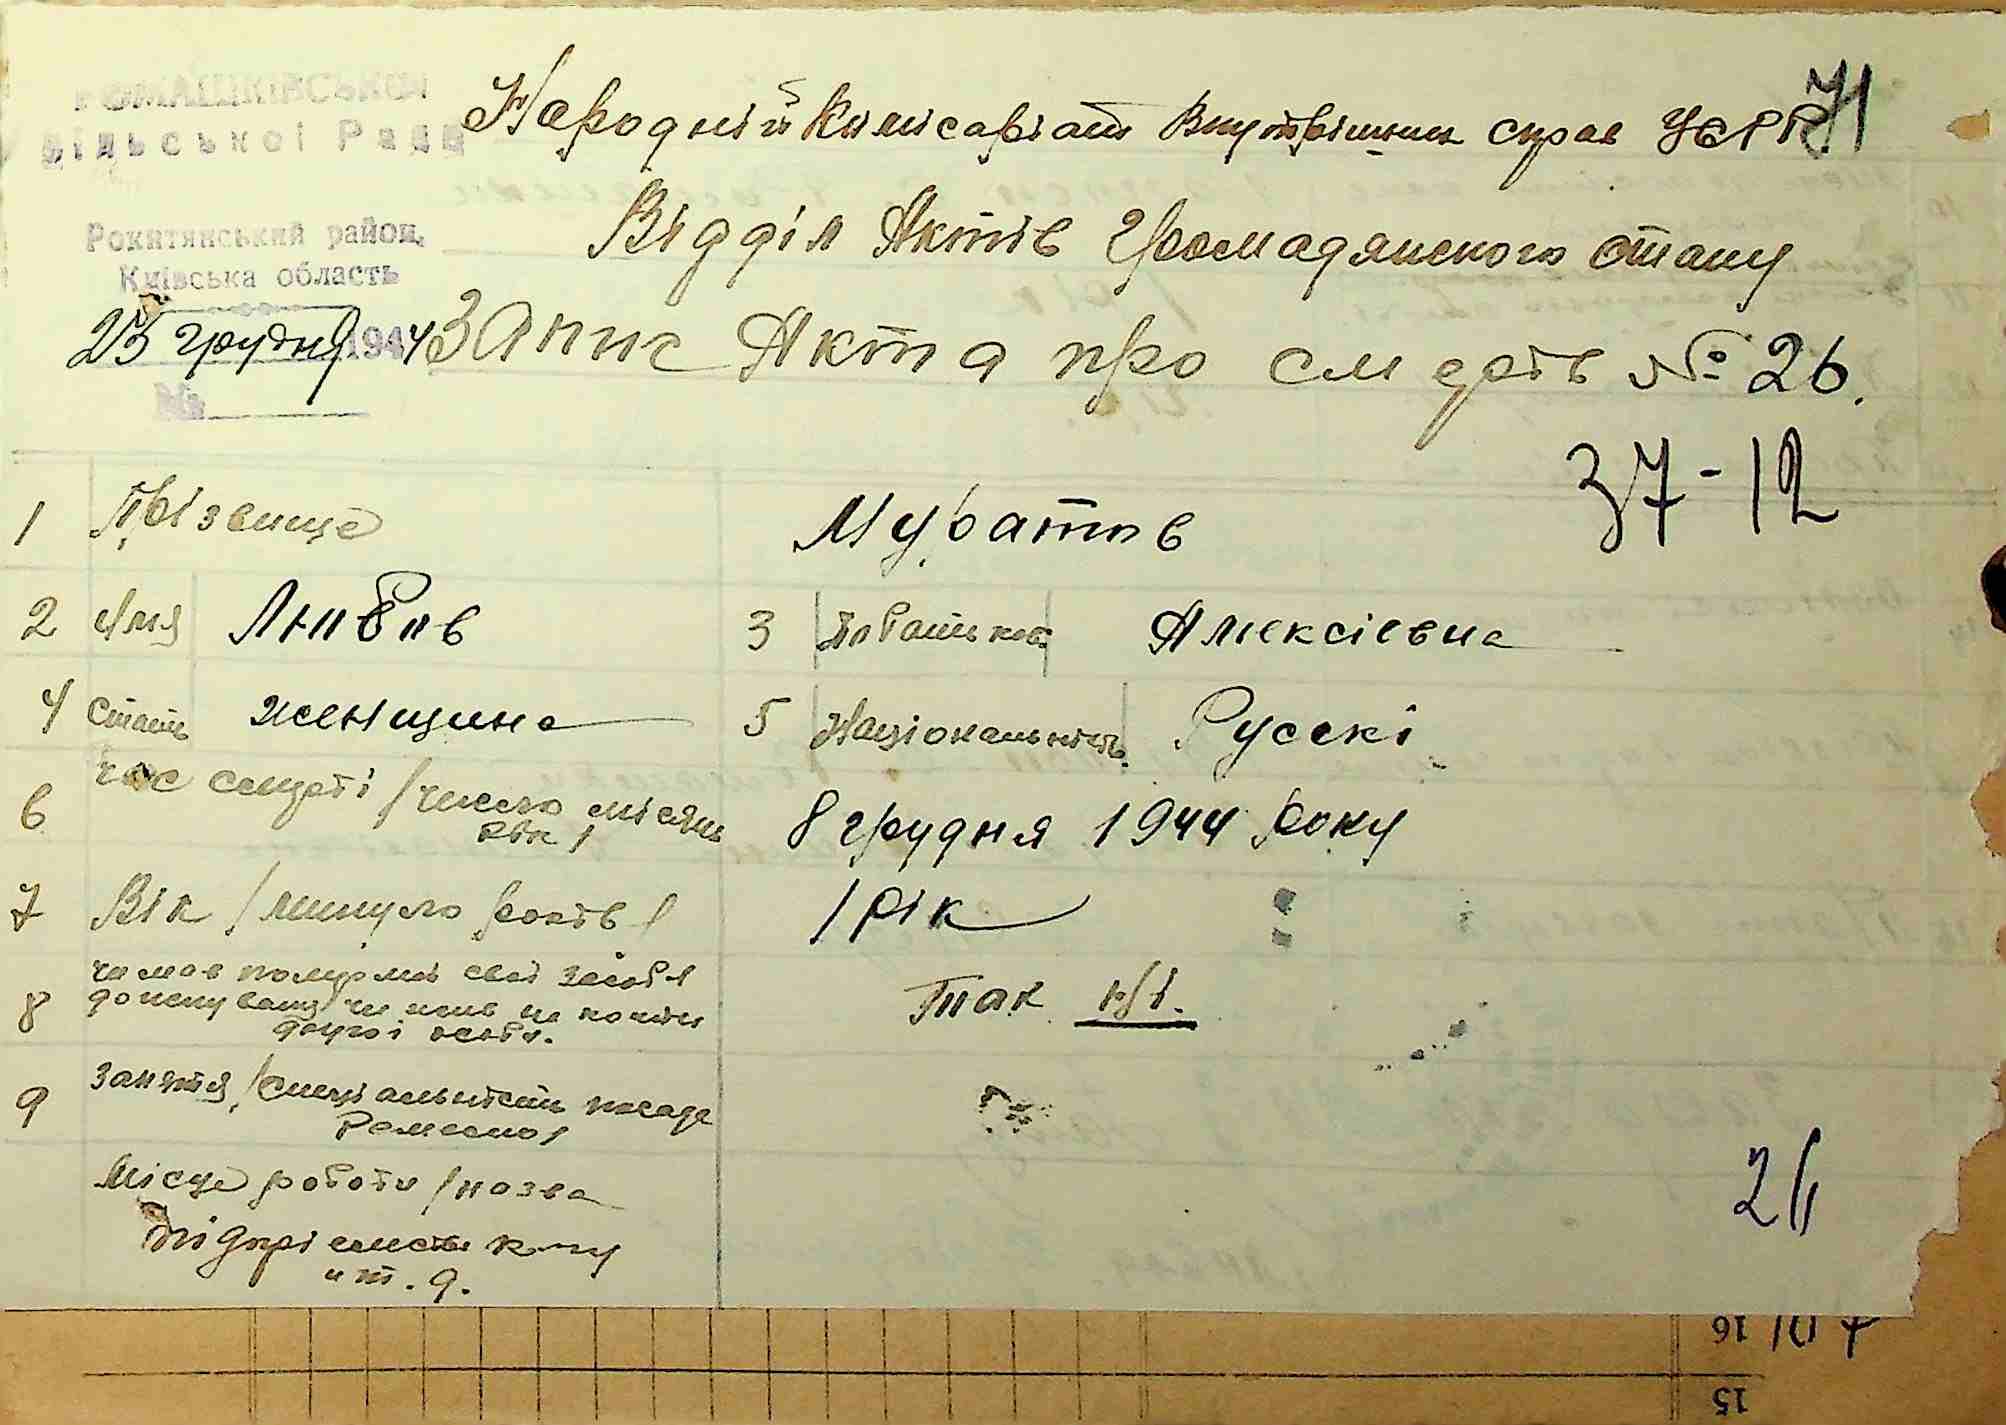 РОМАШКІВСЬКОЇ
Сільської Ради
Рокитянський район,
Київська область
23 грудня 1944
№
Народній Комісаріат Внутрішних справ УСРР
71
Відділ Актів Громадянского стану
Запис Акта про смерть № 26.
37-12
1 Прізвище Муратов
2 Імя Любов 3 По батькові Алексієвна
4 Стать женщина 5 Національність Русскі
6 Час смерті / число місяць рік / 8 грудня 1944 року
7 Вік / минуло років / 1 рік
8 чи мав померлий свої засоби
до існування чи жив на кошти
другої особи. Так ні.
9 Заняття / спеціальність посада
Ремесло /
Місце роботи / назва
підприємства
и т. д.
26
16
15